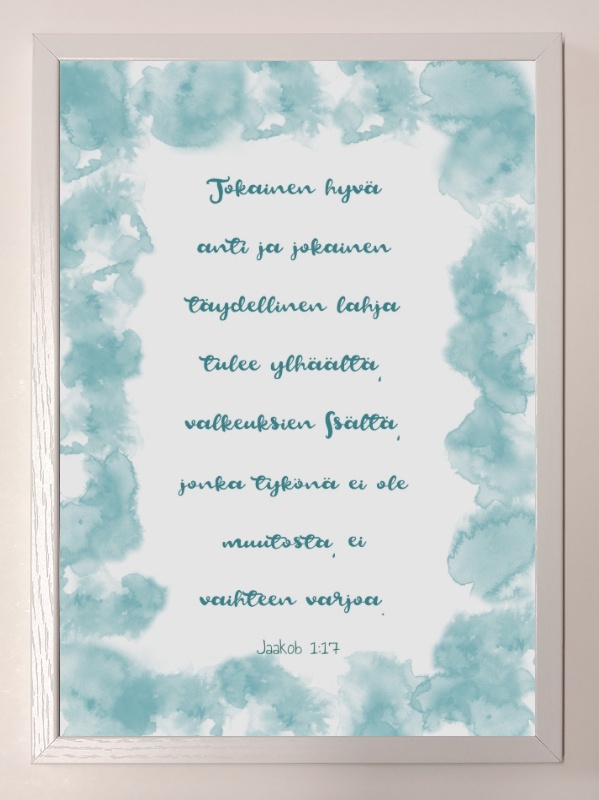 Jokainen hyvä
anti ja jokainen
täydellinen lahja
tulee ylhäältä,
valkeuksien Isältä,
jonka tykönä ei ole
muutosta, ei
vaihteen varjoa.
Jaakob 1:17